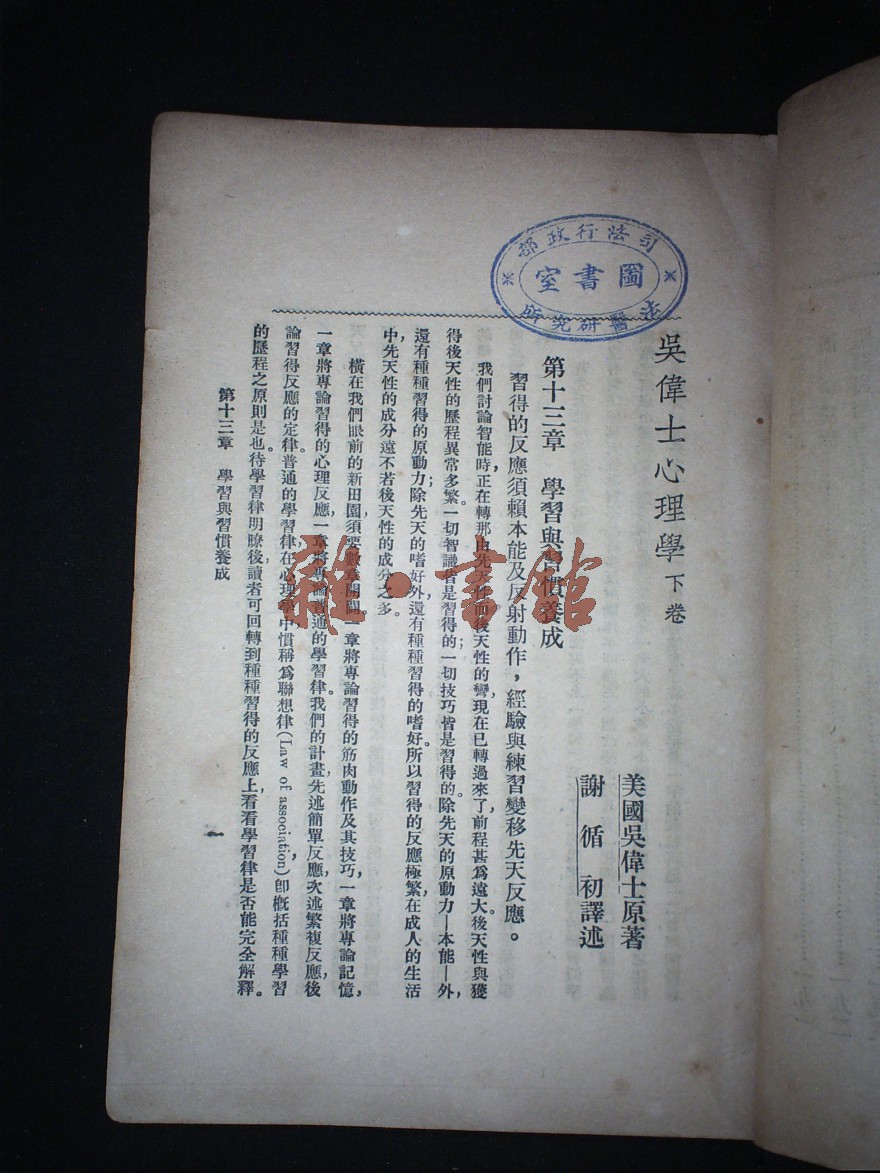 司法行政部
圖書室
法醫研究所
吳偉士心理學 下卷
美國吳偉士原著
謝循初譯述
第十三章 學習與習慣養成
習得的反應須賴本能及反射動作，經驗與練習變移先天反應。
我們討論智能時，正在轉那由先天性而後天性的彎，現在已轉過來了，前程甚爲遠大。後天性與獲
得後天性的歷程異常多繁。一切智識皆是習得的；一切技巧皆是習得的。除先天的原動力—本能—外，
還有種種習得的原動力；除先天的嗜好外，還有種種習得的嗜好。所以習得的反應極繁，在成人的生活
中，先天性的成分遠不若後天性的成分之多。
橫在我們眼前的新田園，須要數章開闢。一章將專論習得的筋肉動作及其技巧，一章將專論記憶，
一章將專論習得的心理反應，一章將專論普通的學習律。我們的計畫，先述簡單反應，次述繁複反應，後
論習得反應的定律。普通的學習律，在心理學中慣稱爲聯想律(Law of association)，卽概括種種學習
的歷程之原則是也。待學習律明瞭後，讀者可回轉到種種習得的反應上，看看學習律是否能完全解釋。
第十三章 學習與習慣養成
一
雜·書館